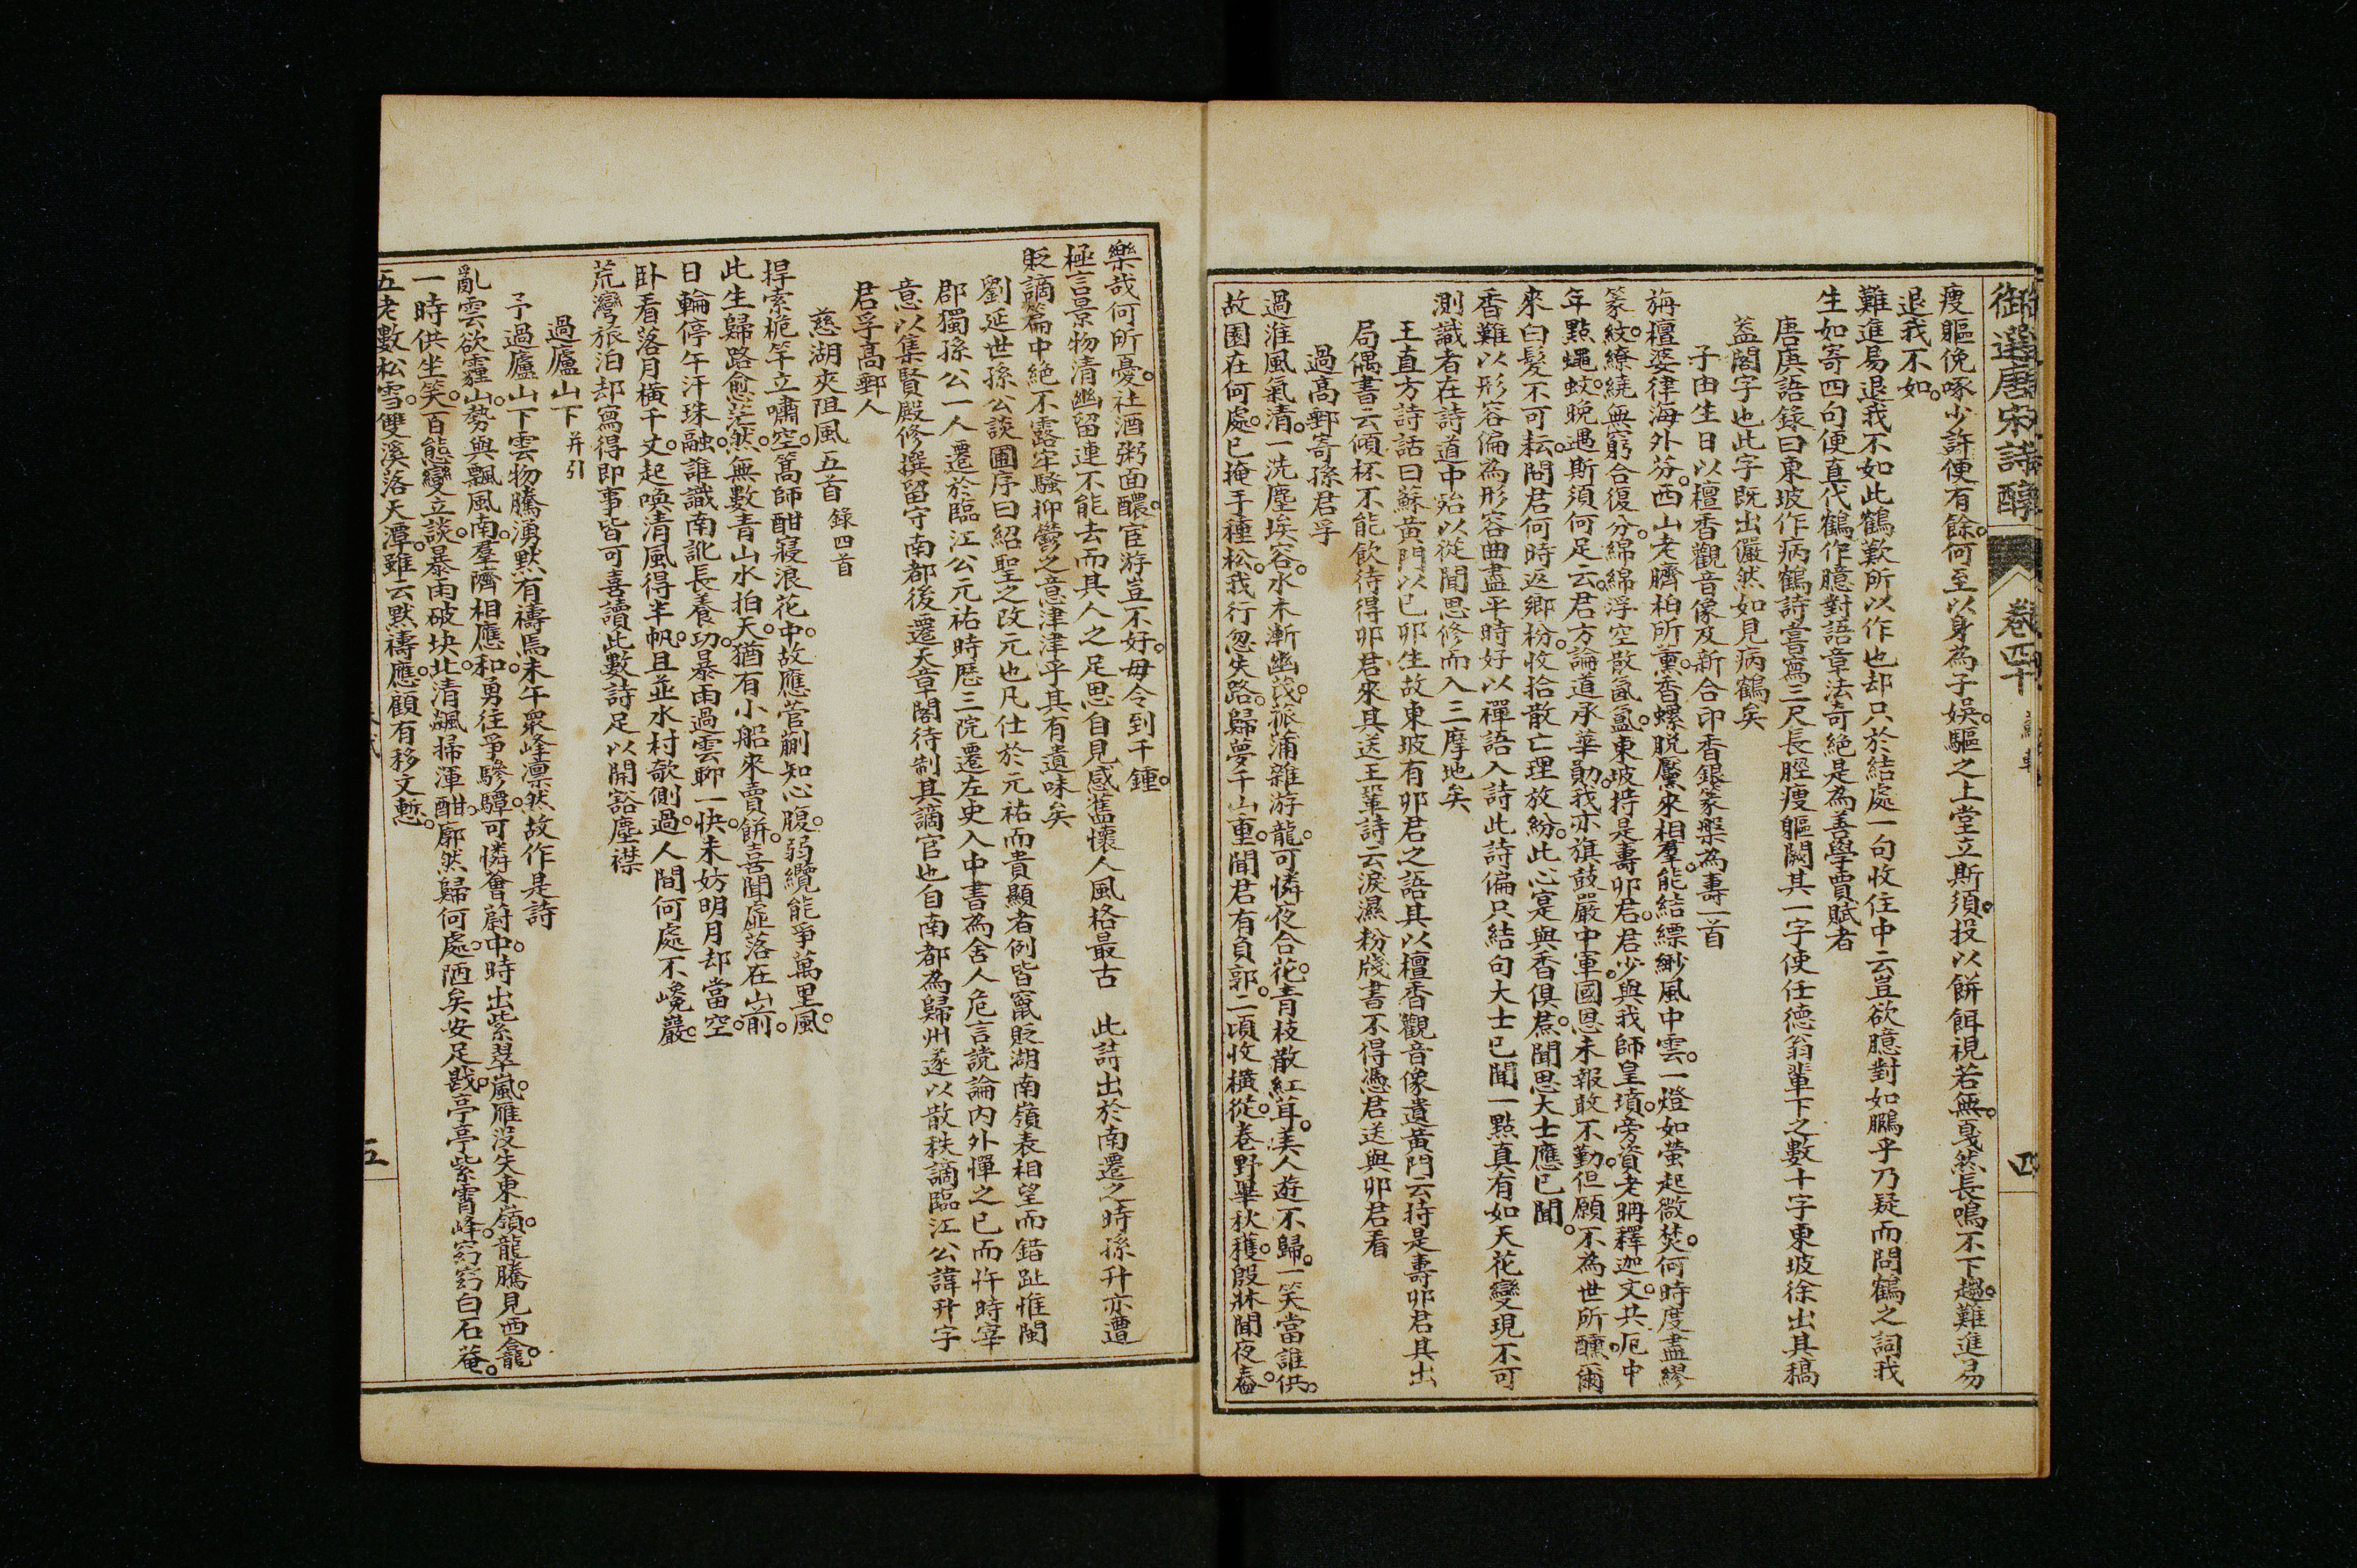 御選唐宋詩醇 卷四十 四
瘦軀俛啄少許便有餘何至以身為子娛驅之上堂立斯須投以餅餌視若無戛然長鳴不下趨難進易
退我不如
難進易退我不如此鶴歎所以作也却只於結處一句收住中云豈欲臆對如鵩乎乃疑而問鶴之詞我
生如寄四句便直代鶴作臆對語章法奇絕是為善學賈賦者
唐庚語錄曰東坡作病鶴詩嘗寫三尺長脛瘦軀闕其一字使任德翁輩下之數十字東坡徐出其稿
葢閣字也此字既出儼然如見病鶴矣
子由生日以檀香觀音像及新合印香銀篆槃為壽一首
旃檀婆律海外芬西山老臍柏所薰香螺脱黶來相羣能結縹緲風中雲一燈如螢起微焚何時度盡繆
篆紋繚繞無窮合復分綿綿浮空散氤氳東坡持是壽卯君君少與我師皇墳旁資老聃釋迦文共厄中
年點蠅蚊晚遇斯須何足云君方論道承華勛我亦旗鼓嚴中軍國恩未報敢不勤但願不為世所醺爾
來白髮不可耘問君何時返鄉枌收拾散亡理放紛此心寔與香俱焄聞思大士應已聞
香難以形容偏為形容曲盡平時好以禪語入詩此詩偏只結句大士已聞一點真有如天花變現不可
測識者在詩道中殆以從聞思修而入三摩地矣
王直方詩話曰蘇黄門以已卯生故東坡有卯君之語其以檀香觀音像遺黄門云持是壽卯君其出
局偶書云傾杯不能飲待得卯君來其送王鞏詩云淚濕粉牋書不得憑君送與卯君看
過高郵寄孫君孚
過淮風氣清一洗塵埃容水木漸幽茂菰蒲雜游龍可憐夜合花青枝散紅茸美人遊不歸一笑當誰供
故園在何處已掩手種松我行忽失路歸夢千山重聞君有負郭二頃收橫從卷野畢秋穫殷牀聞夜舂
樂哉何所憂社酒粥面醲宦游豈不好毋令到千鍾
極言景物清幽留連不能去而其人之足思自見感舊懷人風格最古　此詩出於南遷之時孫升亦遭
貶謫篇中絕不露牢騷抑鬱之意津津乎其有遺味矣
劉延世孫公談圃序曰紹聖之改元也凡仕於元祐而貴顯者例皆竄貶湖南嶺表相望而錯趾惟閩
郡獨孫公一人遷於臨江公元祐時歷三院遷左史入中書為舍人危言讜論內外憚之已而忤時宰
意以集賢殿修撰留守南都後遷天章閣待制其謫官也自南都為歸州遂以散秩謫臨江公諱升字
君孚高郵人
慈湖夾阻風五首 錄四首
捍索桅竿立嘯空篙師酣寢浪花中故應菅蒯知心腹弱纜能爭萬里風
此生歸路愈茫然無數青山水拍天猶有小船來賣餅喜聞墟落在山前
日輪停午汗珠融誰識南訛長養功暴雨過雲聊一快未妨明月却當空
卧看落月橫千丈起喚清風得半帆且並水村欹側過人間何處不巉巖
荒灣旅泊却寫得即事皆可喜讀此數詩足以開豁塵襟
過廬山下 并引
予過廬山下雲物騰湧默有禱焉未午衆峰凛然故作是詩
亂雲欲霾山勢與飄風南羣隮相應和勇往爭驂驔可憐薈蔚中時出紫翠嵐雁沒失東嶺龍騰見西龕
一時供坐笑百態變立談暴雨破坱圠清飊掃渾酣廓然歸何處陋矣安足戡亭亭紫霄峰窈窈白石菴
五老數松雪雙溪落天潭雖云默禱應顧有移文慙
五